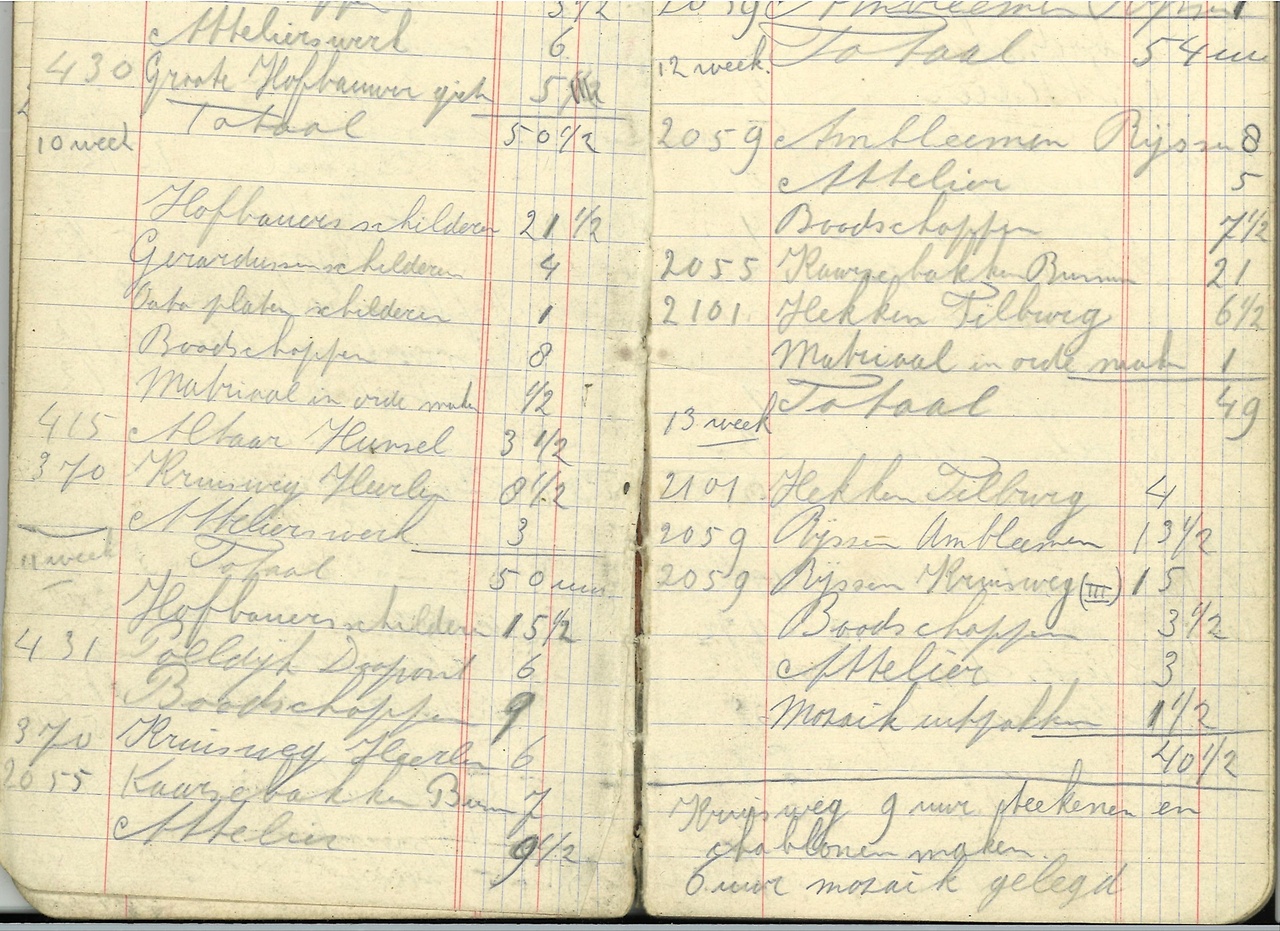 5 1/2
Atelierswerk 6
430 Groote Hofbauwer 5
Totaal 50 1/2
10 week
Hofbauers schilderen 21 1/2
Gerardussen schilderen 4
platen schilderen 1
Boodschappen 8
Matriaal in orde maken 1/2
415 Altaar Hunsel 3 1/2
370 Kruisweg Heerlen 8 1/2
Attelierswerk 3
11 week Totaal 50 uur
Hofbauers schilderen 15 1/2
431 Poeldijk Doopvont 6
Boodschappen 9
370 Kruisweg Heerlen 6
2055 Kaarsebakken 7
Attelier 9 1/2
2059 Ambleemen Rijssen 1
12 week. Totaal 54 uur
2059 Ambleemen Rijssen 8
Attelier 5
Boodschappen 7 1/2
2055 Kaarsebakken 21
2101 Hekken Tilburg 6 1/2
Matriaal in orde maken 1
Totaal 49
13 week
2101 Hekken Tilburg 4
2059 Rijssen Ambleemen 13 1/2
2059 Rijssen Kruisweg (III) 15
Boodschappen 3 1/2
Attelier 3
Mozaik uitpakken 1 1/2
40 1/2
Kruisweg 9 uur teekenen en
chablonen maken.
6 uur mozaik gelegd